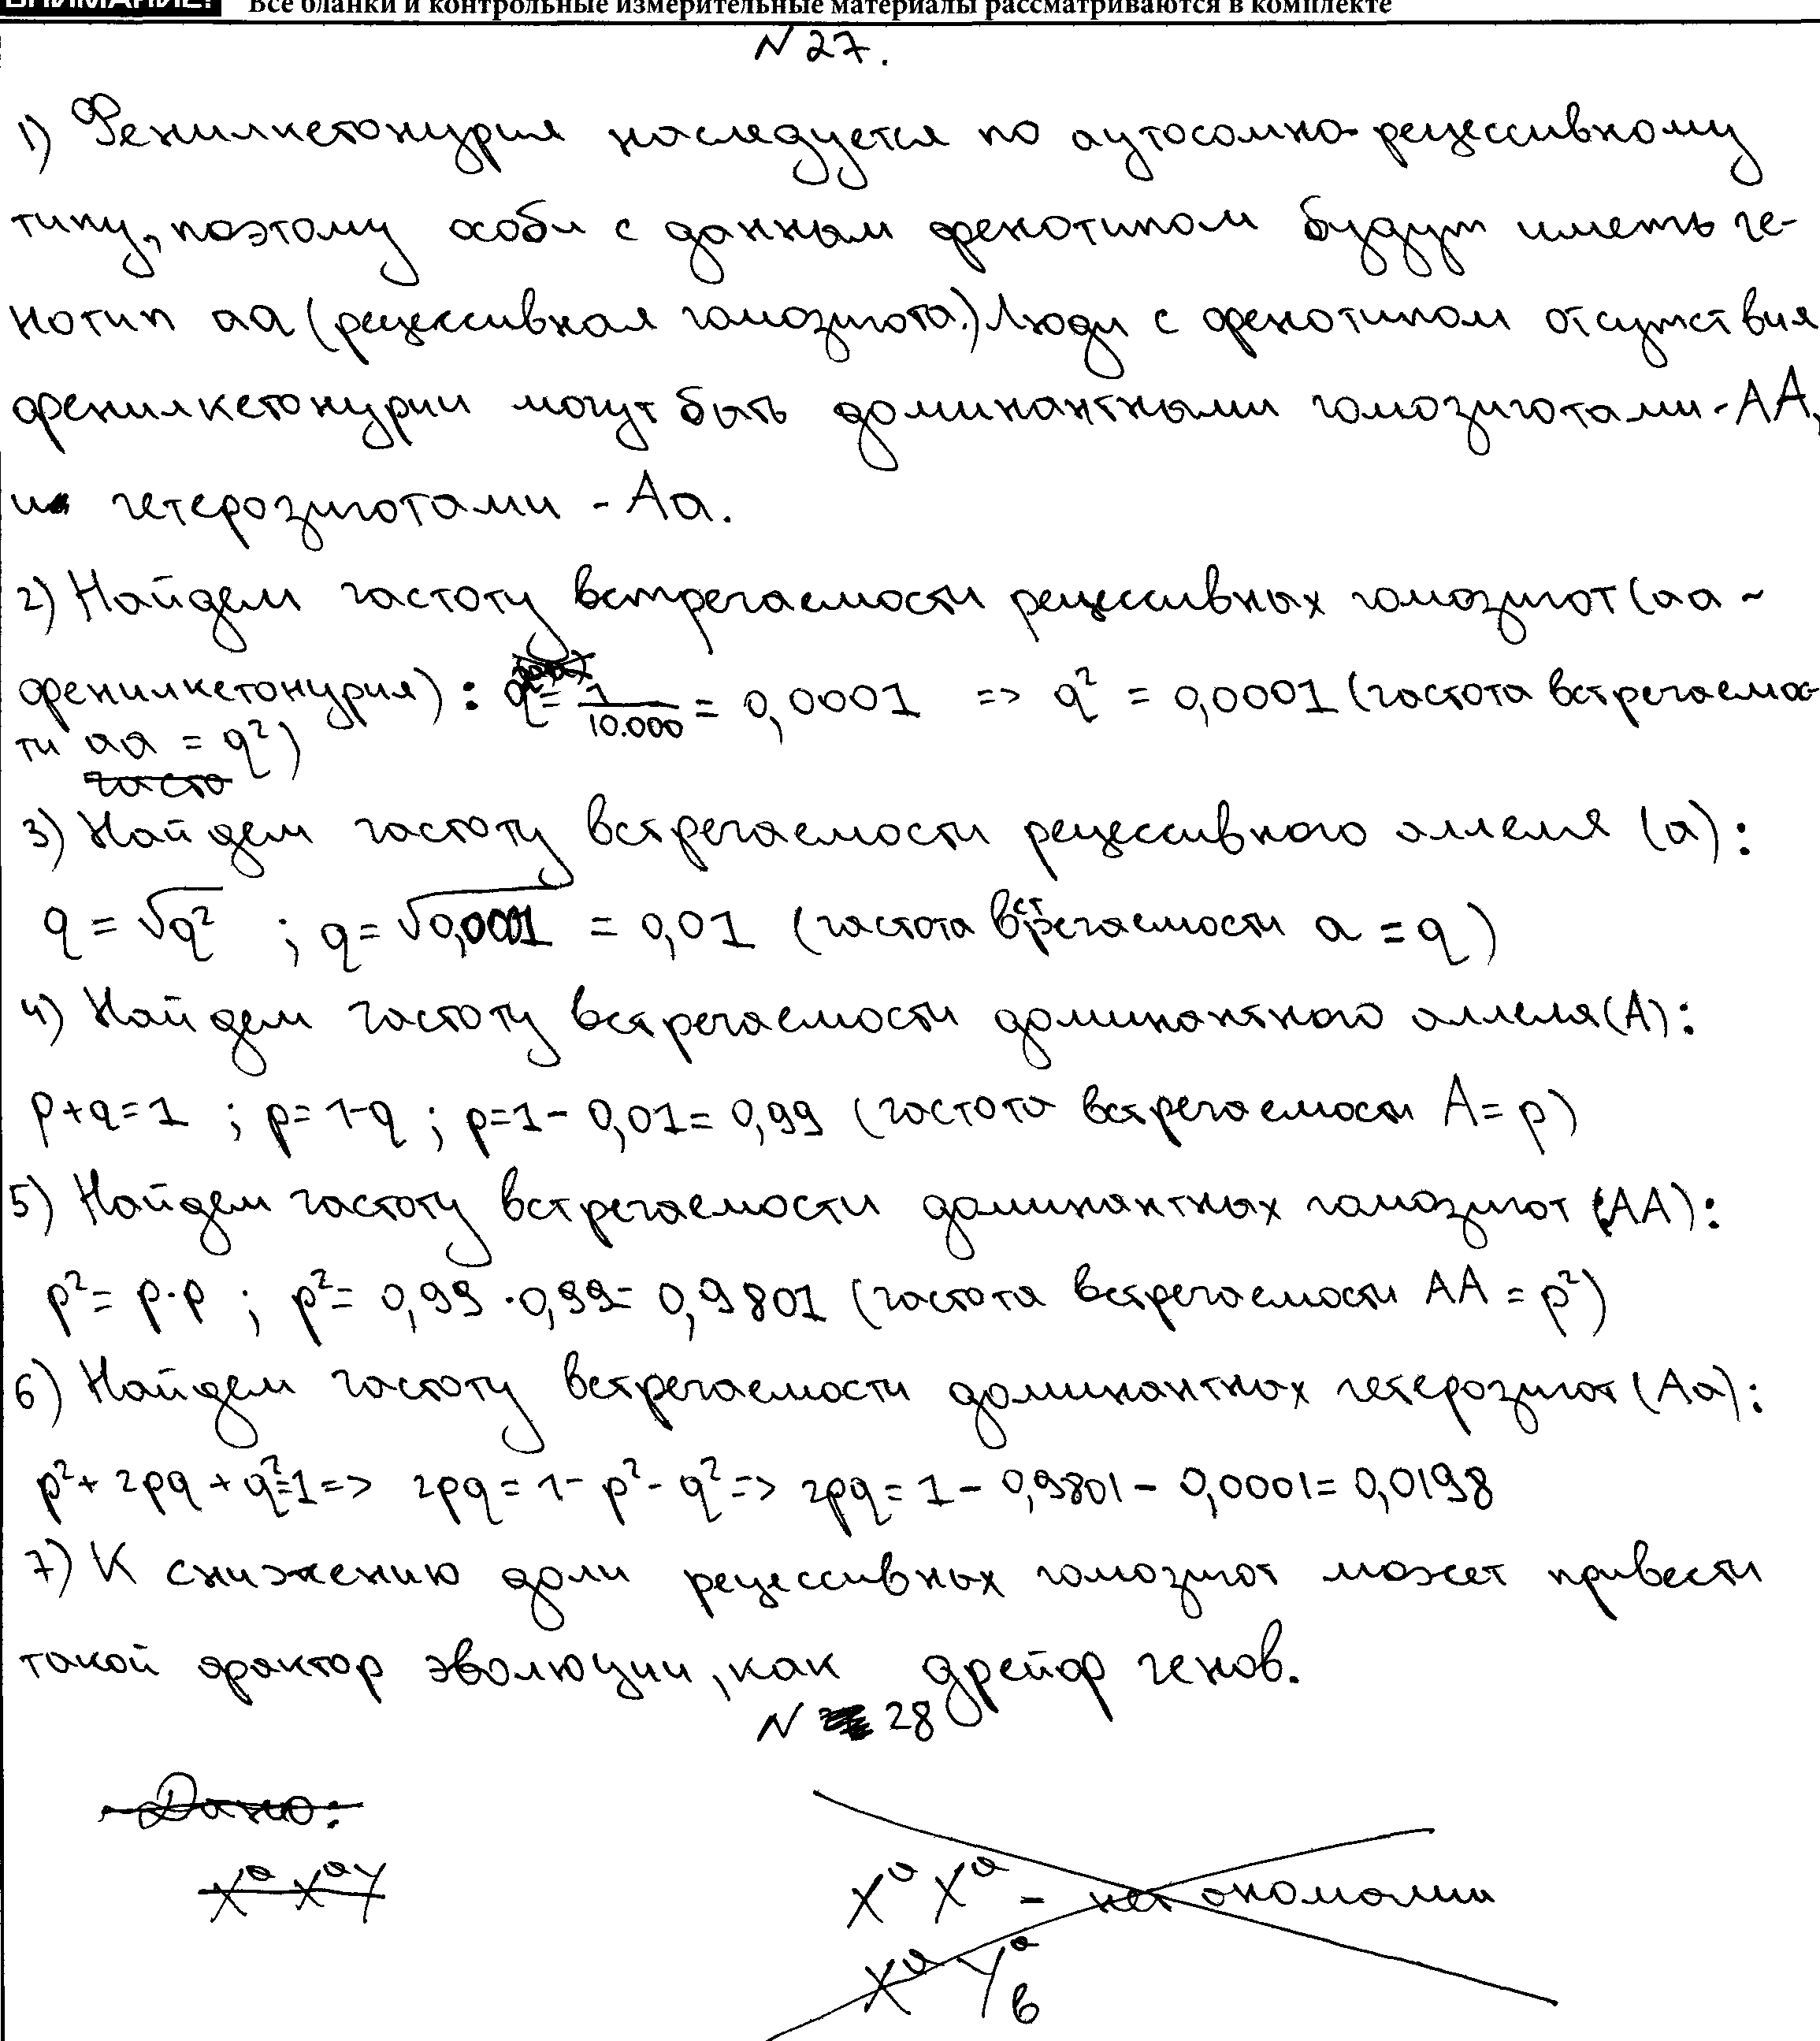 ВНИМАНИЕ! Все бланки и контрольные измерительные материалы рассматриваются в комплекте
N 27.
1) Фенилкетонурия наследуется по аутосомно-рецессивному
типу, поэтому особи с данным фенотипом будут иметь ге-
нотип aa (рецессивная гомозигота.) Люди с фенотипом отсутствия
фенилкетонурии могут быть доминантными гомозиготами - AA,
и гетерозиготами - Aa.
2) Найдем частоту встречаемости рецессивных гомозигот (aa -
фенилкетонурия) : q² = 1/10.000 = 0,0001 => q² = 0,0001 (частота встречаемос-
ти aa = q²)
часто
3) Найдем частоту встречаемости рецессивного аллеля (a) :
q = √q² ; q = √0,0001 = 0,01 (частота встречаемости a = q)
4) Найдем частоту встречаемости доминантного аллеля (A) :
p+q=1 ; p=1-q ; p=1- 0,01= 0,99 (частота встречаемости A = p)
5) Найдем частоту встречаемости доминантных гомозигот (AA) :
p² = p·p ; p² = 0,99 · 0,99 = 0,9801 (частота встречаемости AA = p²)
6) Найдем частоту встречаемости доминантных гетерозигот (Aa) :
p² + 2pq + q² = 1 => 2pq = 1 - p² - q² => 2pq = 1 - 0,9801 - 0,0001 = 0,0198
7) К снижению доли рецессивных гомозигот может привести
такой фактор эволюции, как дрейф генов.
N 28
Дано:
Xᵃ XᵃY
Xᵃ Xᵃ - нет аномалии
Xᵃ Yᵃв